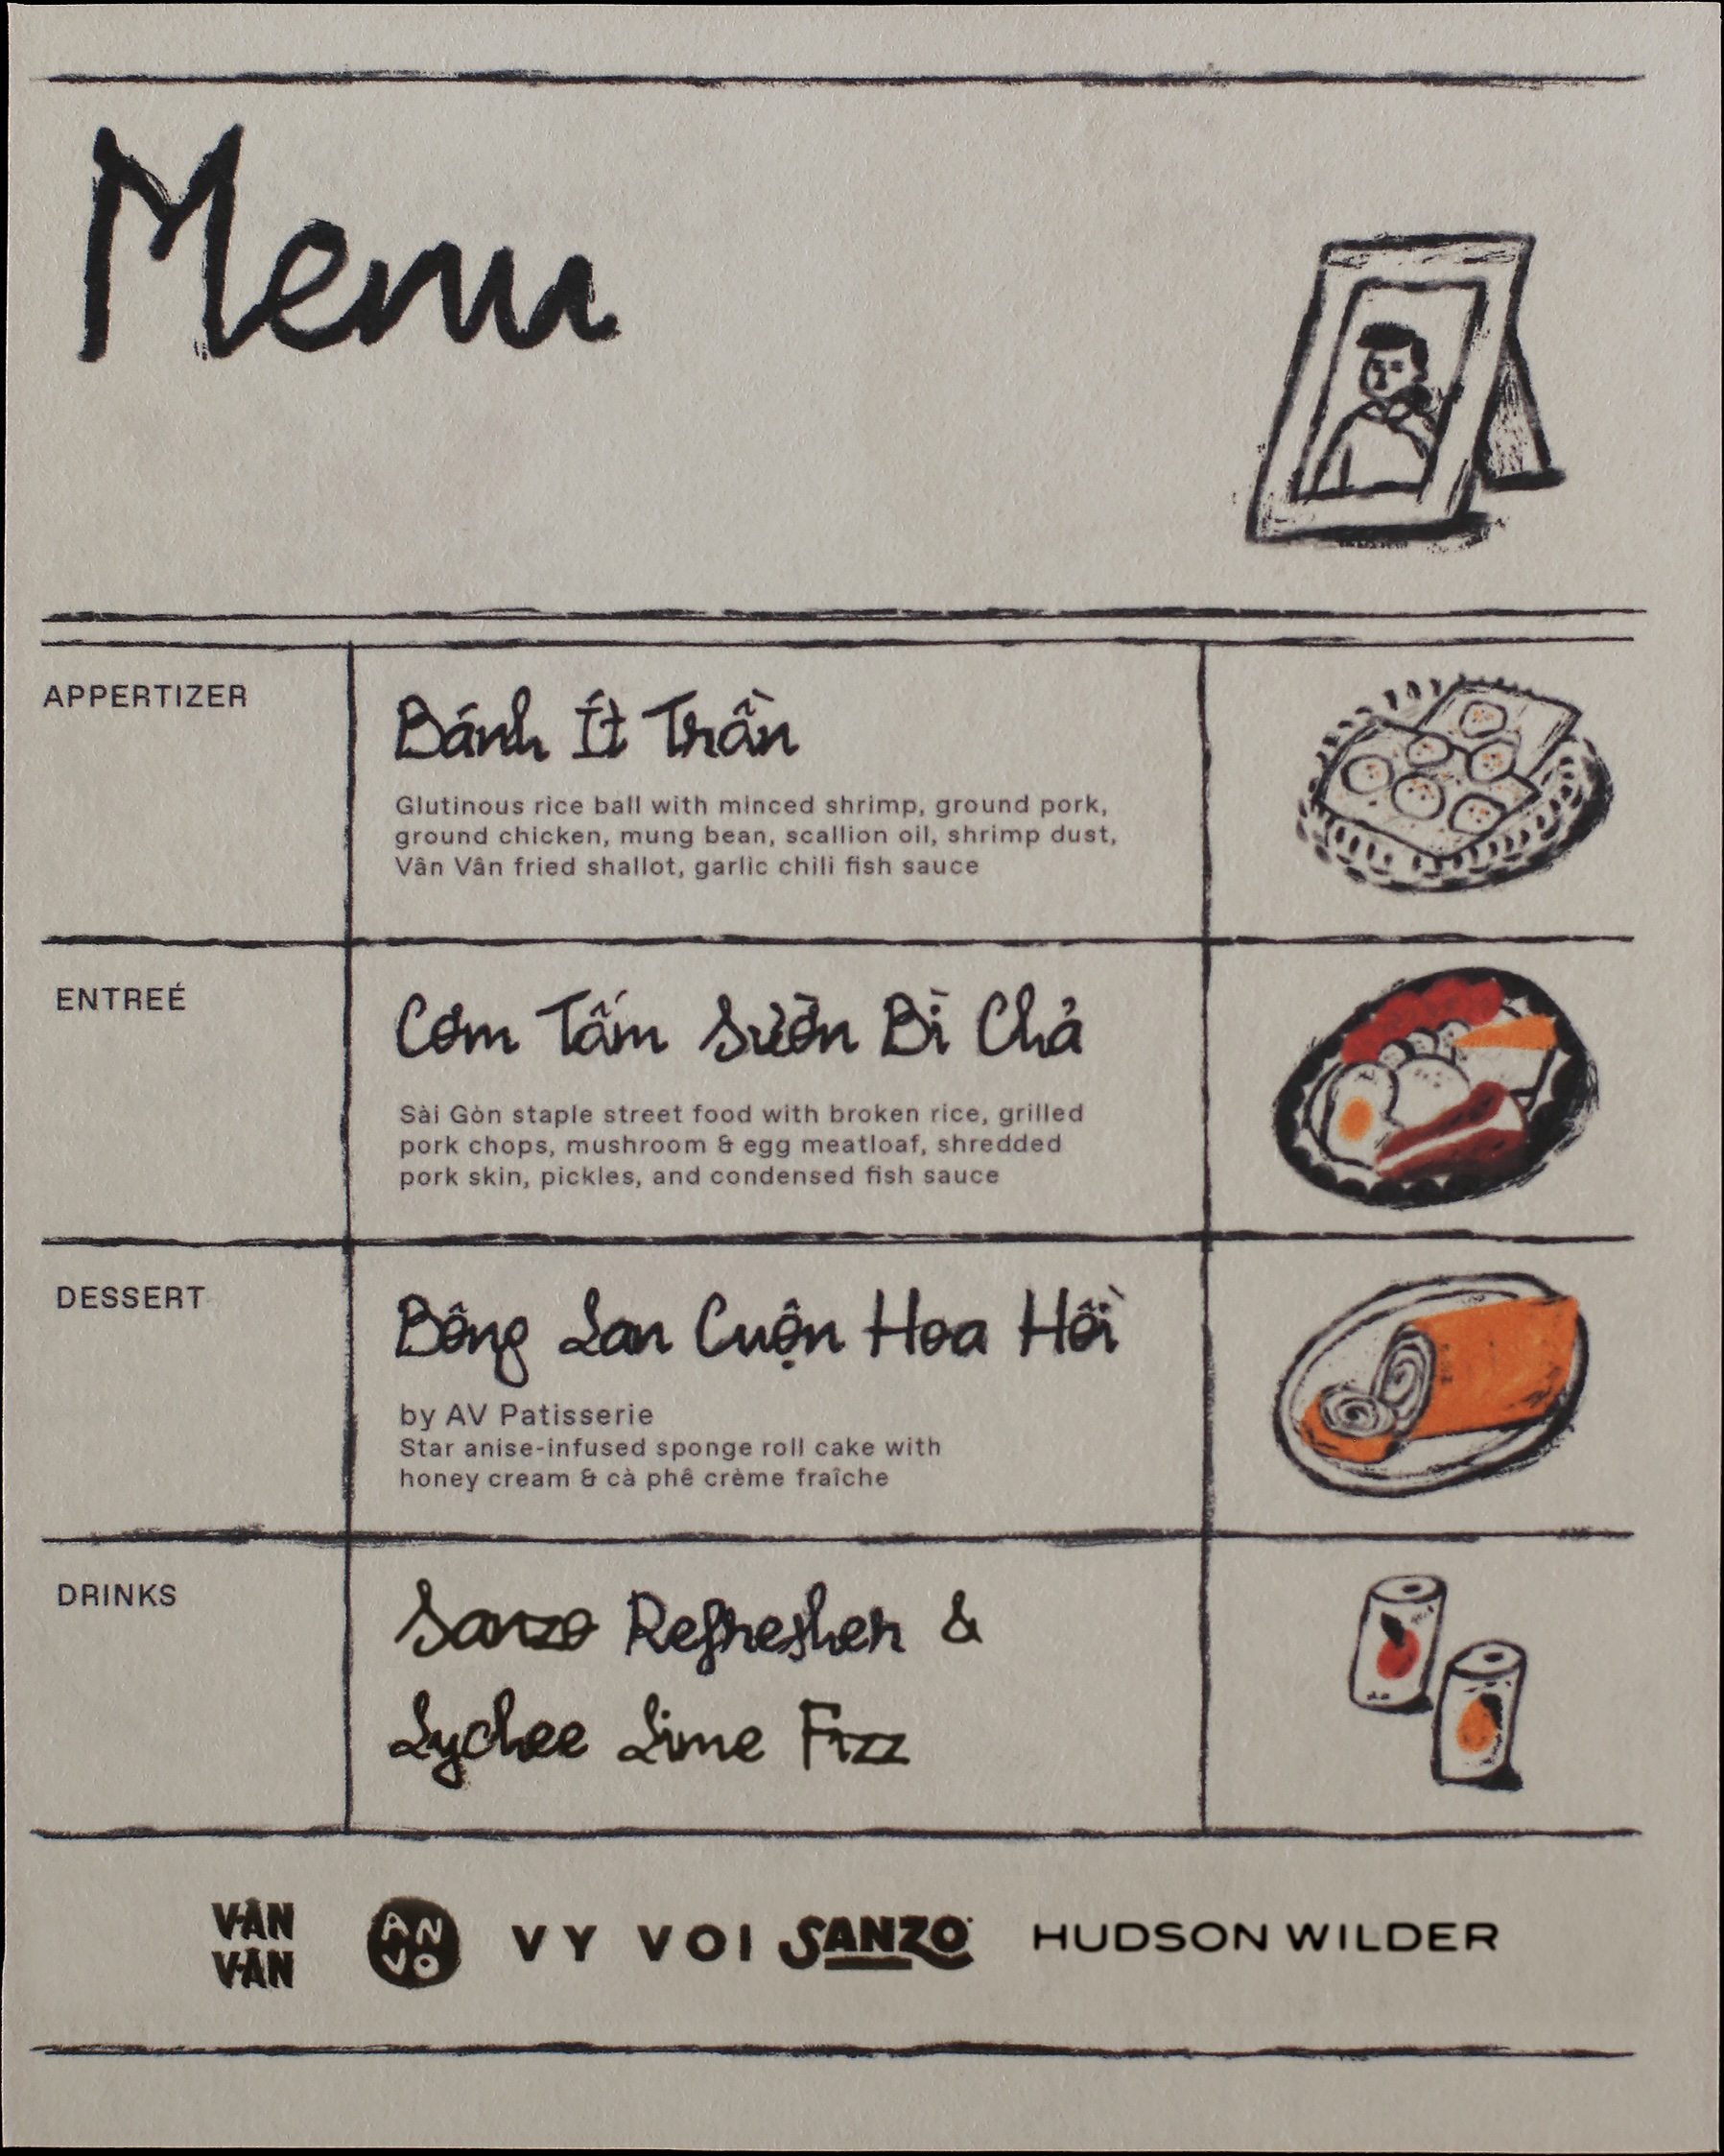 Menu
APPERTIZER
Bánh Ít Trần
Glutinous rice ball with minced shrimp, ground pork,
ground chicken, mung bean, scallion oil, shrimp dust,
Vân Vân fried shallot, garlic chili fish sauce
ENTREÉ
Cơm Tấm Sườn Bì Chả
Sài Gòn staple street food with broken rice, grilled
pork chops, mushroom & egg meatloaf, shredded
pork skin, pickles, and condensed fish sauce
DESSERT
Bông Lan Cuộn Hoa Hồi
by AV Patisserie
Star anise-infused sponge roll cake with
honey cream & cà phê crème fraîche
DRINKS
Sanzo Refresher &
Lychee Lime Fizz
VÂN
VÂN
ĂN
VÕ
VY VOI
SANZO
HUDSON WILDER